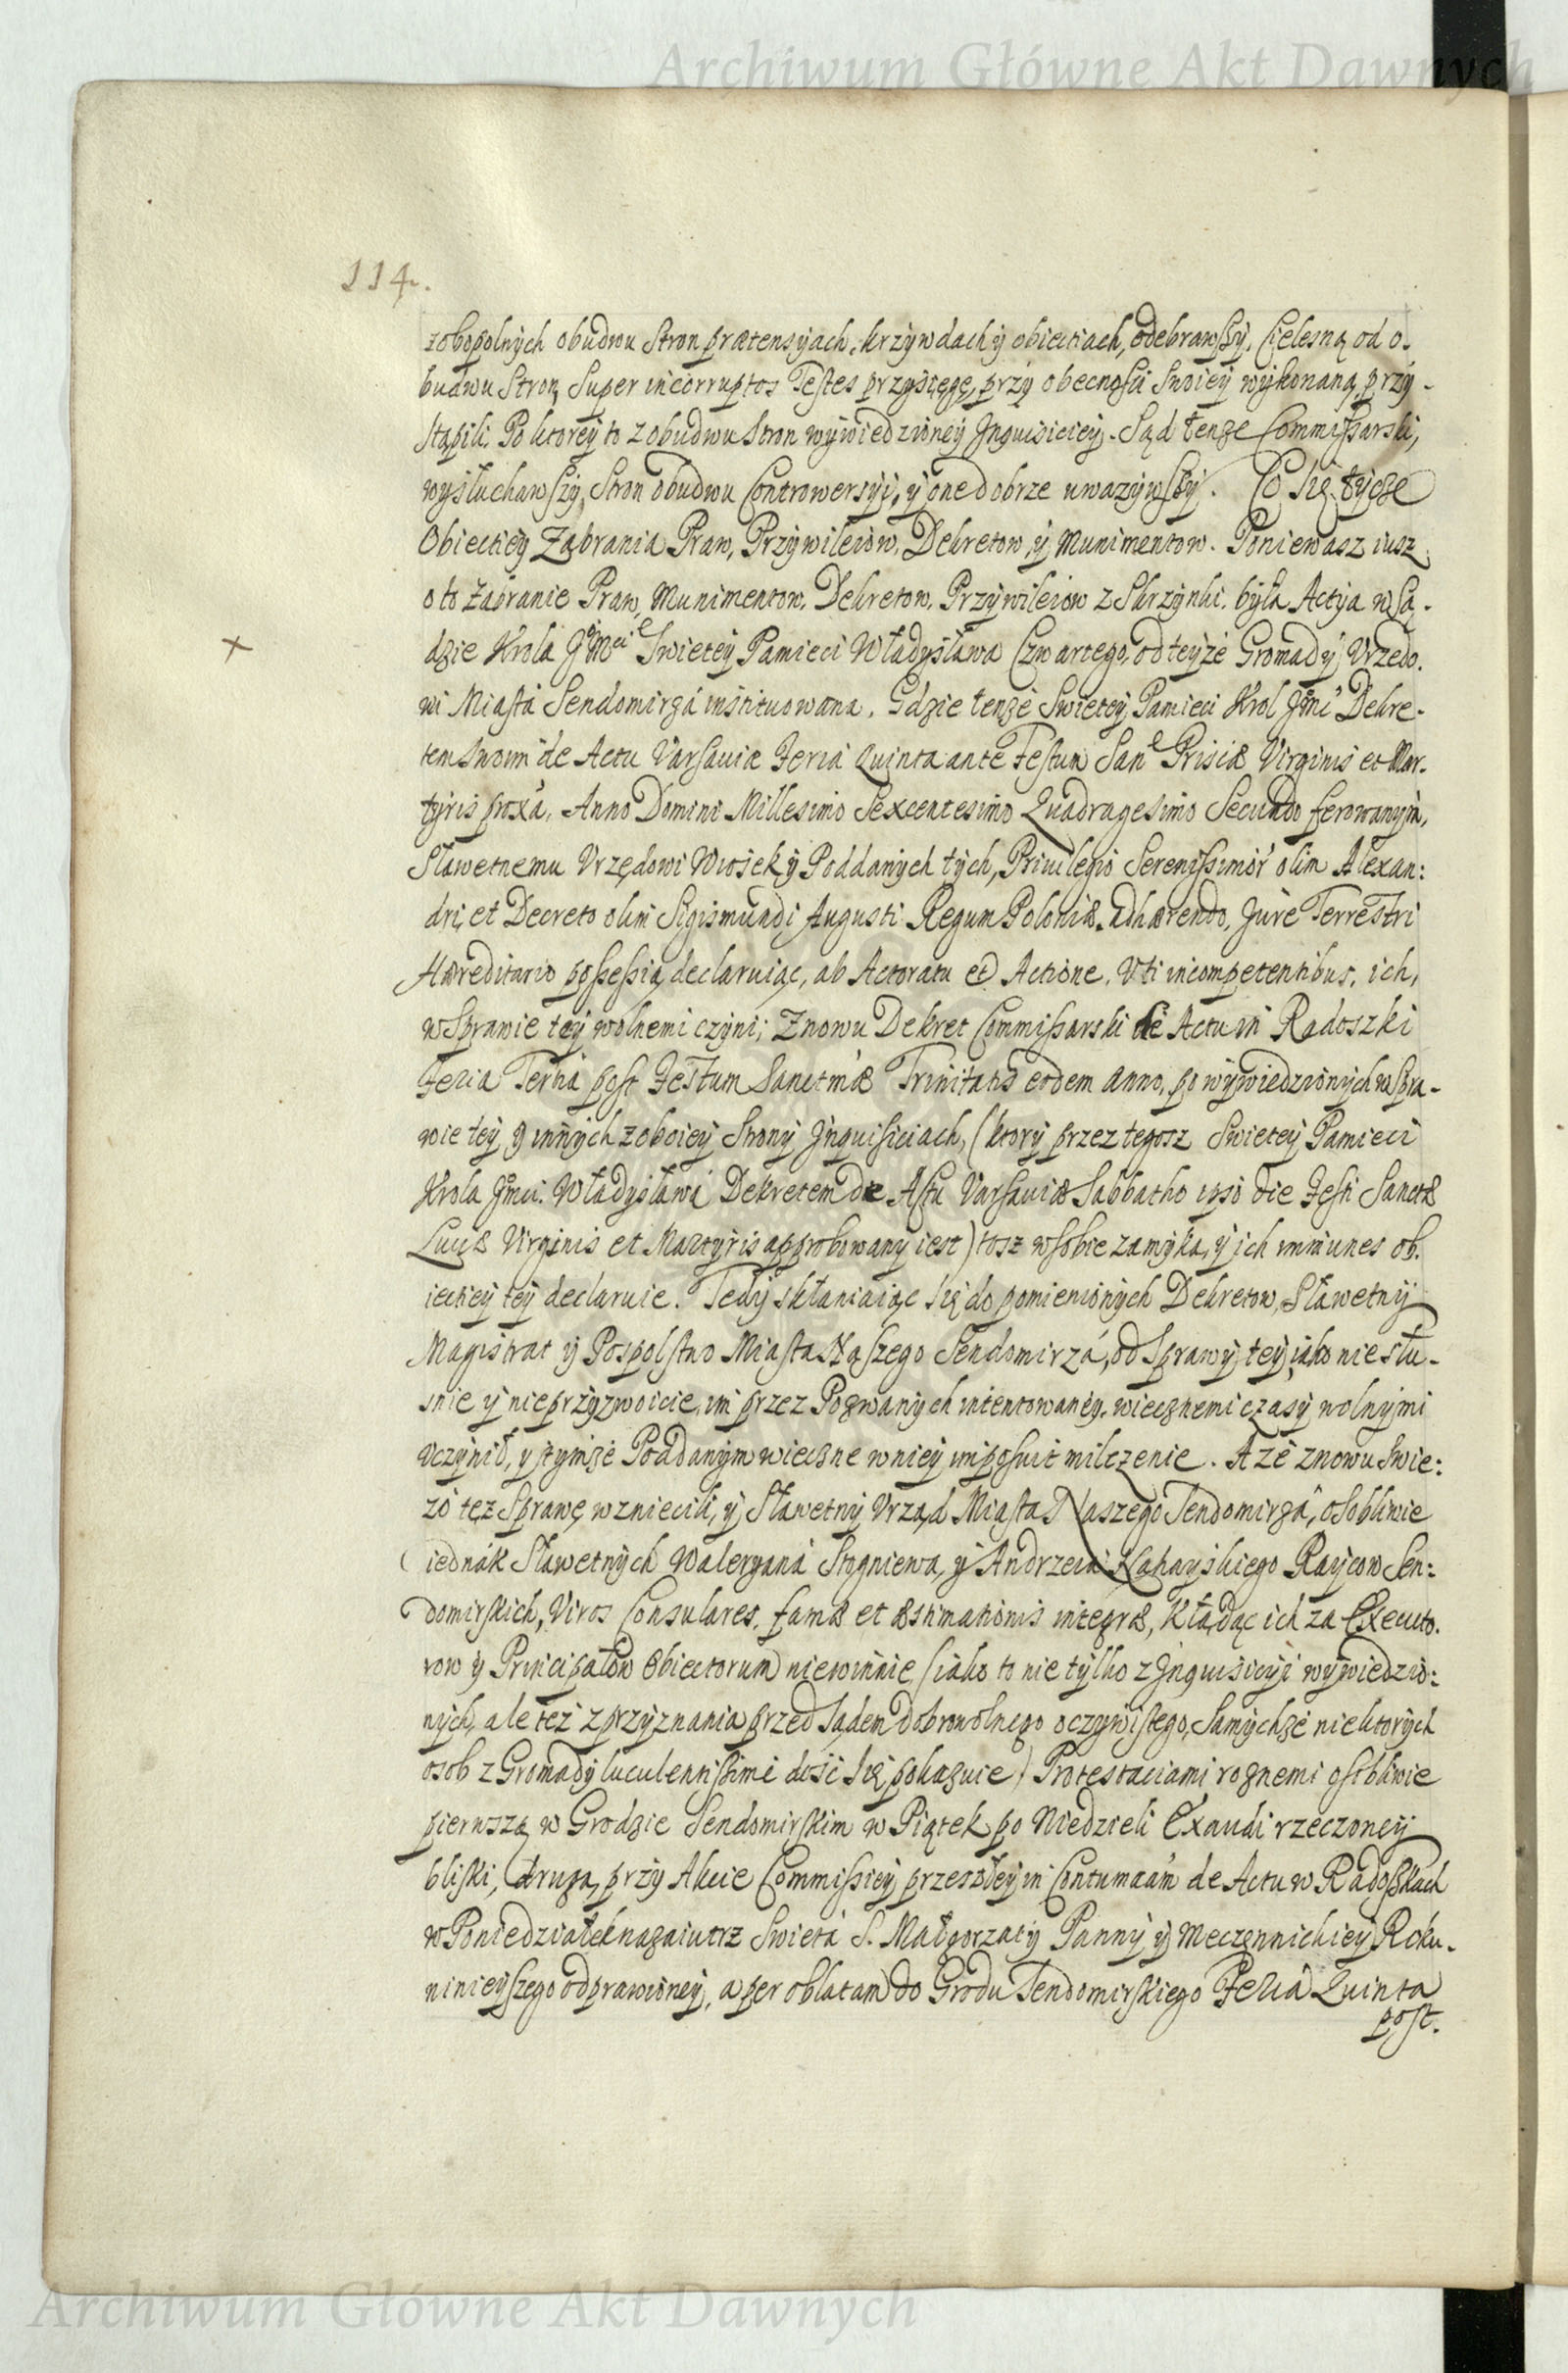 Archiwum Główne Akt Dawnych
114.
zobopolnych obudwu Stron prætensyach, krzywdach y obiectiach, odebrawszy, Cielesną od o.
budwu Stron Super incorruptos Testes przysięgę, przy obecnosci Swoiey wykonaną, przy-
stąpili. Po ktorey to z obudwu Stron wywiedzioney Jnquisiciey. Sąd tenze Commissarski,
wysłuchawszy Stron obudwu Controwersyi, y one dobrze uwazywszy. Co się tycze
Obiectiey Zabrania Praw, Przywileiow, Dekretow, y Munimentow. Poniewasz iusz
o to Zabranie Praw, Munimentow, Dekretow, Przywileiow z Skrzynki, była Actya w Są-
dzie Krola JeMci Swietey Pamieci Władysława Czwartego, od teyze Gromady, Vrzędo.
wi Miasta Sendomirza instituowana. Gdzie tenze Swietey Pamieci Krol Jmć Dekre-
tem Swoim de Actu Varsaviæ Feria Quinta ante Festum Sane Priscæ Virginis et Mar-
tyris proxa, Anno Domini Millesimo Sexcentesimo Quadragesimo Secundo ferowanym,
Sławetnemu Vrzędowi Wiosek y Poddanych tych, Privilegio Serenissimor olim Alexan:
dri, et Decreto olim Sigismundi Augusti Regum Poloniæ adhærendo, Jure Terrestri
Hæreditario possessią declaruiąc, ab Actoratu et Actione, Vti incompetentibus, ich,
w Sprawie tey wolnemi czyni; Znowu Dekret Commissarski de Actu in Radoszki
Feria Tertia post Festum Sanctmæ Trinitatis eodem anno, po wywiedzionych w Spra-
wie tey y innych z oboiey Strony Jnquisiciach, (ktory przez tegosz Swietey Pamieci
Krola Jmci Władysława Dekretem de Actu Varsaviæ Sabbatho ipso die Festi Sanctæ
Luciæ Virginis et Martyris approbowany iest) tosz w sobie zamyka, y ich immunes ob.
iectiey tey declaruie. Tedy skłaniaiąc się do pomienionych Dekretow, Sławetny
Magistrat y Pospolstwo Miasta Naszego Sendomirza, od Sprawy tey, iako nie słu-
snie y nieprzyzwoicie, im przez Pozwanych intentowaney, wiecznemi czasy wolnymi
Vczynił, y tymze Poddanym wieczne w niey imposuit milczenie. A ze znowu swie:
zo tęz Sprawę wzniecili, y Sławetny Vrząd Miasta Naszego Sendomirza, osobliwie
iednak Sławetnych Waleryana Stogniewa, y Andrzeia Kahayskiego Raycow Sen:
domirskich, Viros Consulares, famæ et æstimationis integræ, Kładąc ich za Executo.
row y Principałow Obiectorum niewinnie (iako to nie tylko z Jnquisicyi wywiedzio:
nych, ale tez z przyznania przed Sądem dobrowolnego oczywistego, Samychze niektorych
osob z Gromady luculentissime dosc się pokazuie) Protestaciami roznemi osobliwie
pierwszą w Grodzie Sendomirskim w Piątek po Niedzieli Exaudi rzeczoney
bliski, drugą, przy Akcie Commissiey przeszłey in Contumaciam de Actu w Radoszkach
w Poniedziałek nazaiutrz Swieta S. Małgorzaty Panny y Meczennickiey Roku.
ninieyszego odprawioney, a per oblatam do Grodu Sendomirskiego Feria Quinta
post.
Archiwum Główne Akt Dawnych